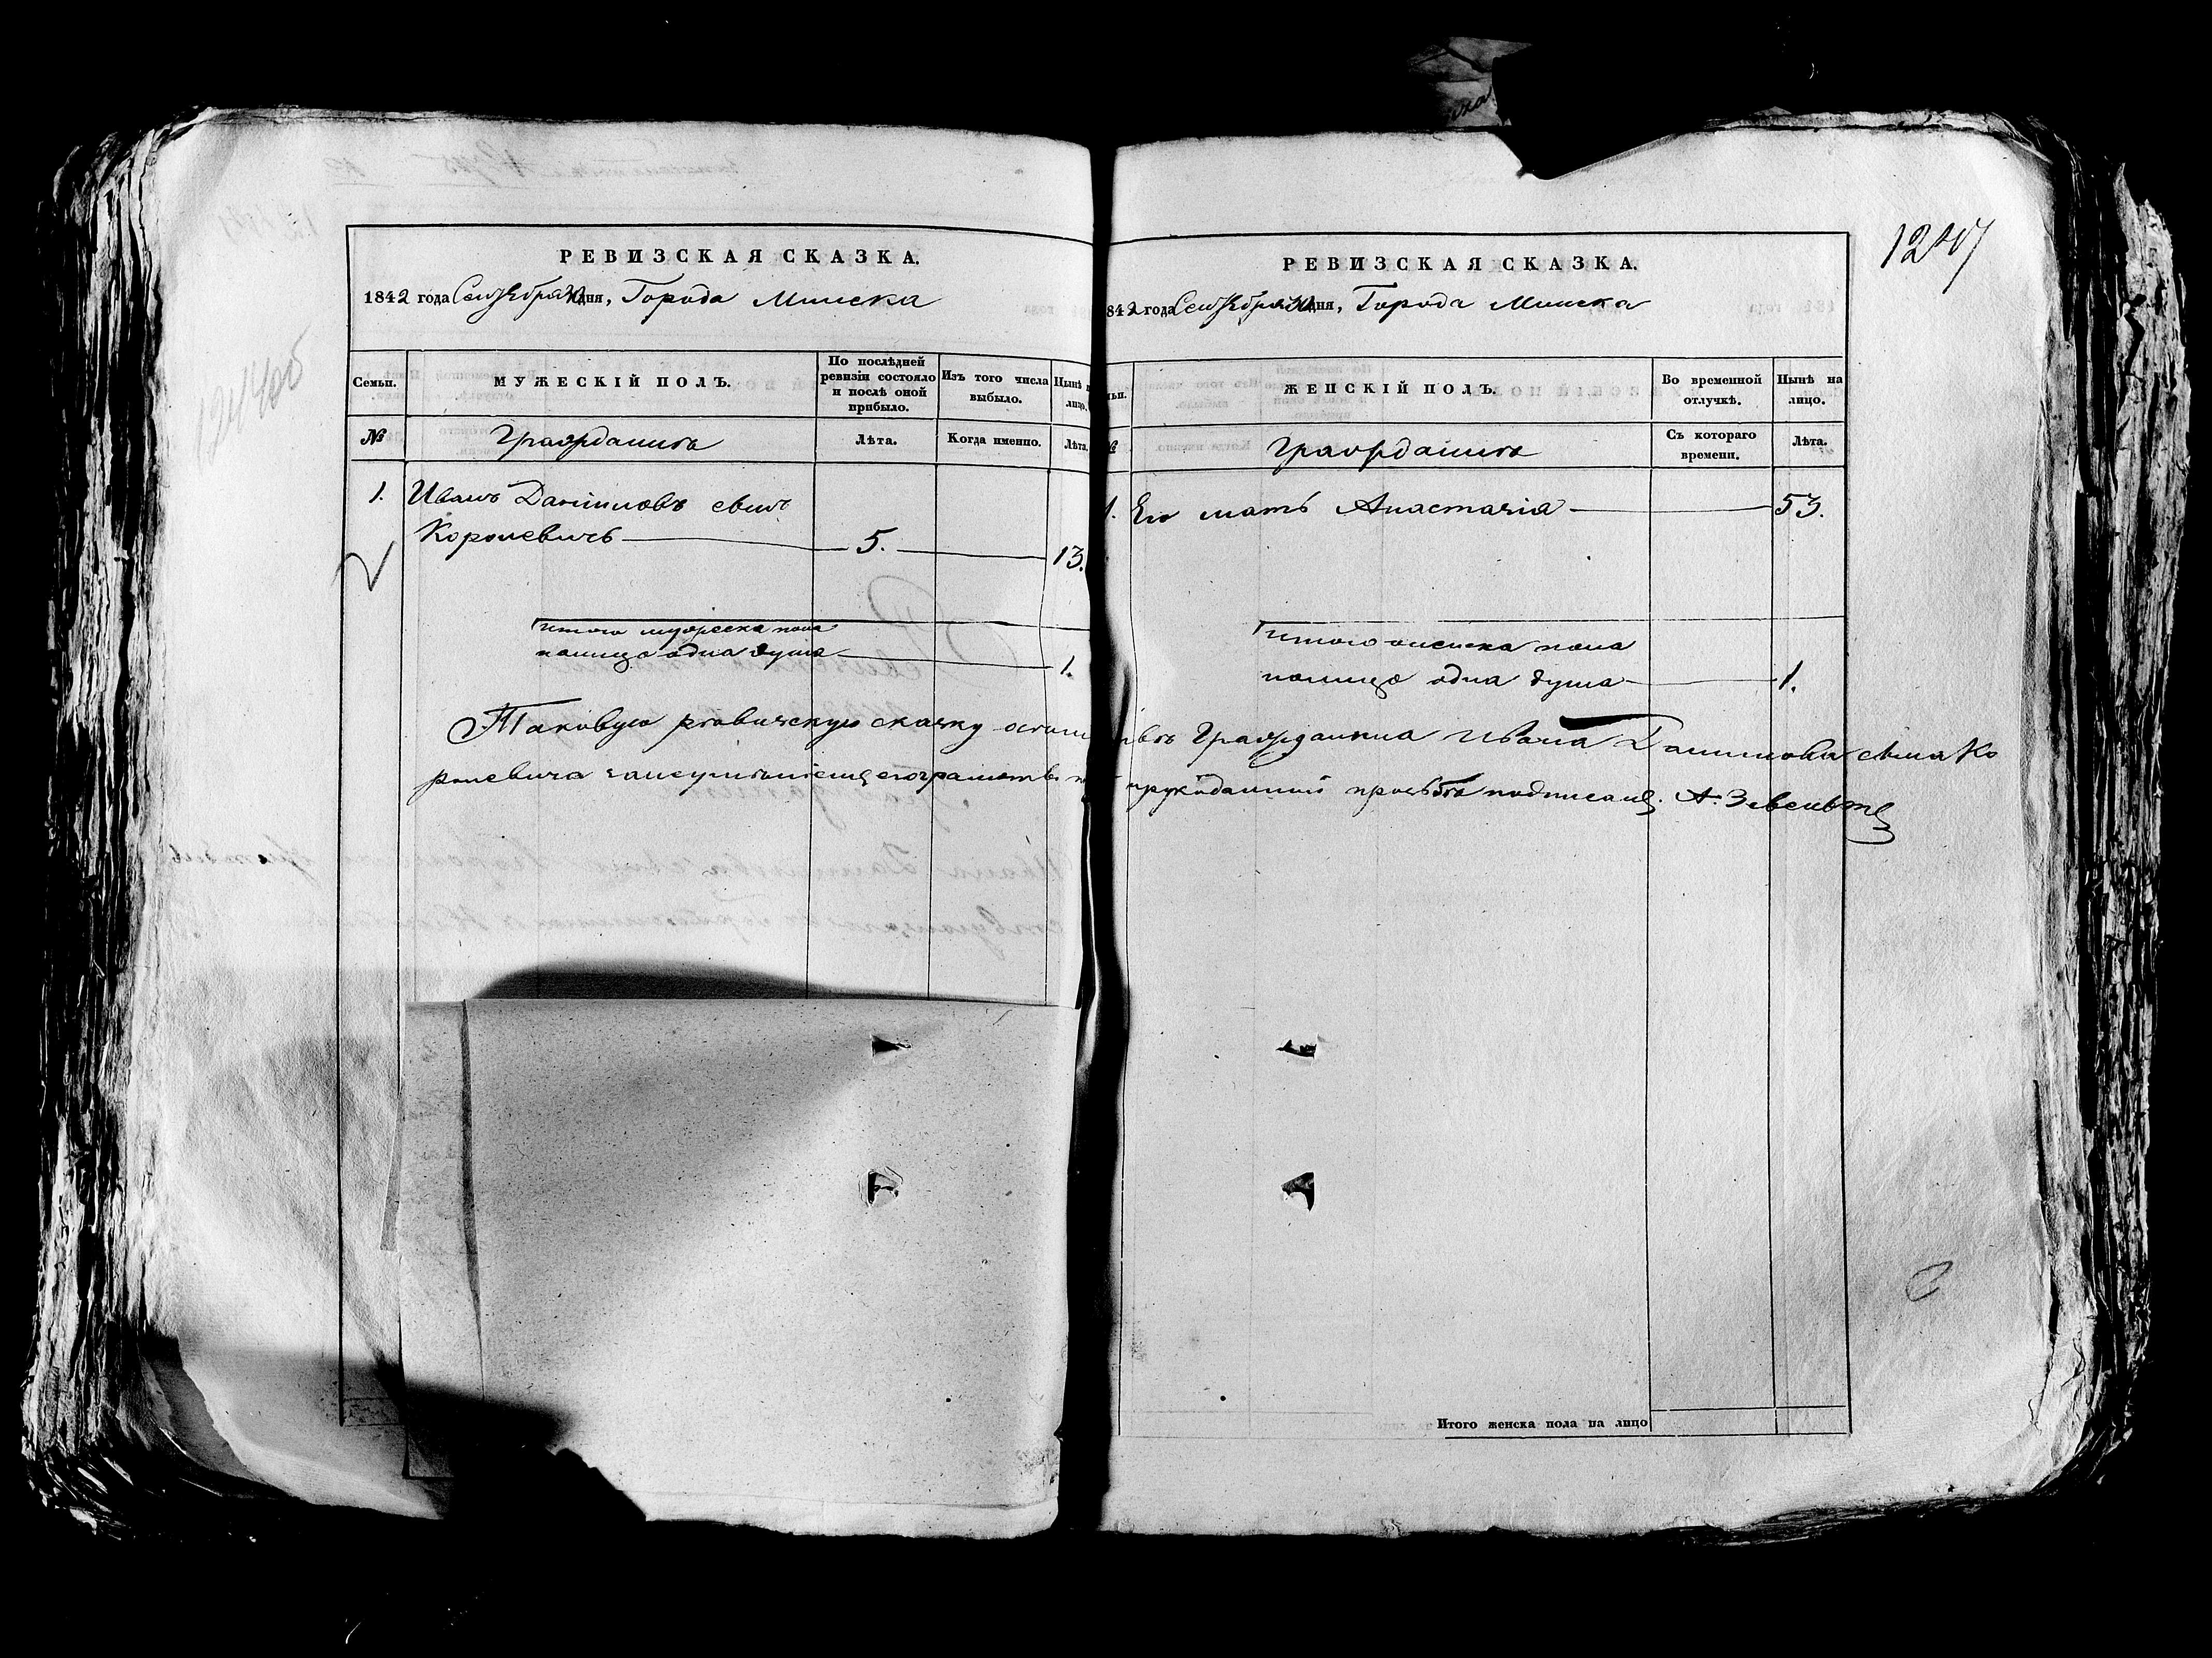 РЕВИЗСКАЯ СКАЗКА.
1842 года Сентября дня, Города Минска
Семьи.
МУЖЕСКІЙ ПОЛЪ.
По послѣдней
ревизіи состояло
и послѣ оной
прибыло.
Изъ того числа
выбыло.
Нынѣ
лицо.
№
Гражданинъ
Лѣта.
Когда именно.
Лѣта.
1. Иванъ Даниловъ сынъ
Королевичъ 5. 13.
Итого мужеска пола
налицо одна душа 1.
Таковую ревизскую сказку
РЕВИЗСКАЯ СКАЗКА.
842 года Сентября дня, Города Минска
1247
ЖЕНСКІЙ ПОЛЪ.
Во временной
отлучкѣ.
Нынѣ на
лицо.
№
Гражданинъ
Съ котораго
времени.
Лѣта.
1. Его мать Анастазія 53.
Итого женска пола
налицо одна душа 1.
Гражданина Ивана Данилова сына Ко
ролевича
рукоданной прозьбѣ подписалъ. А.
Итого женска пола на лицо